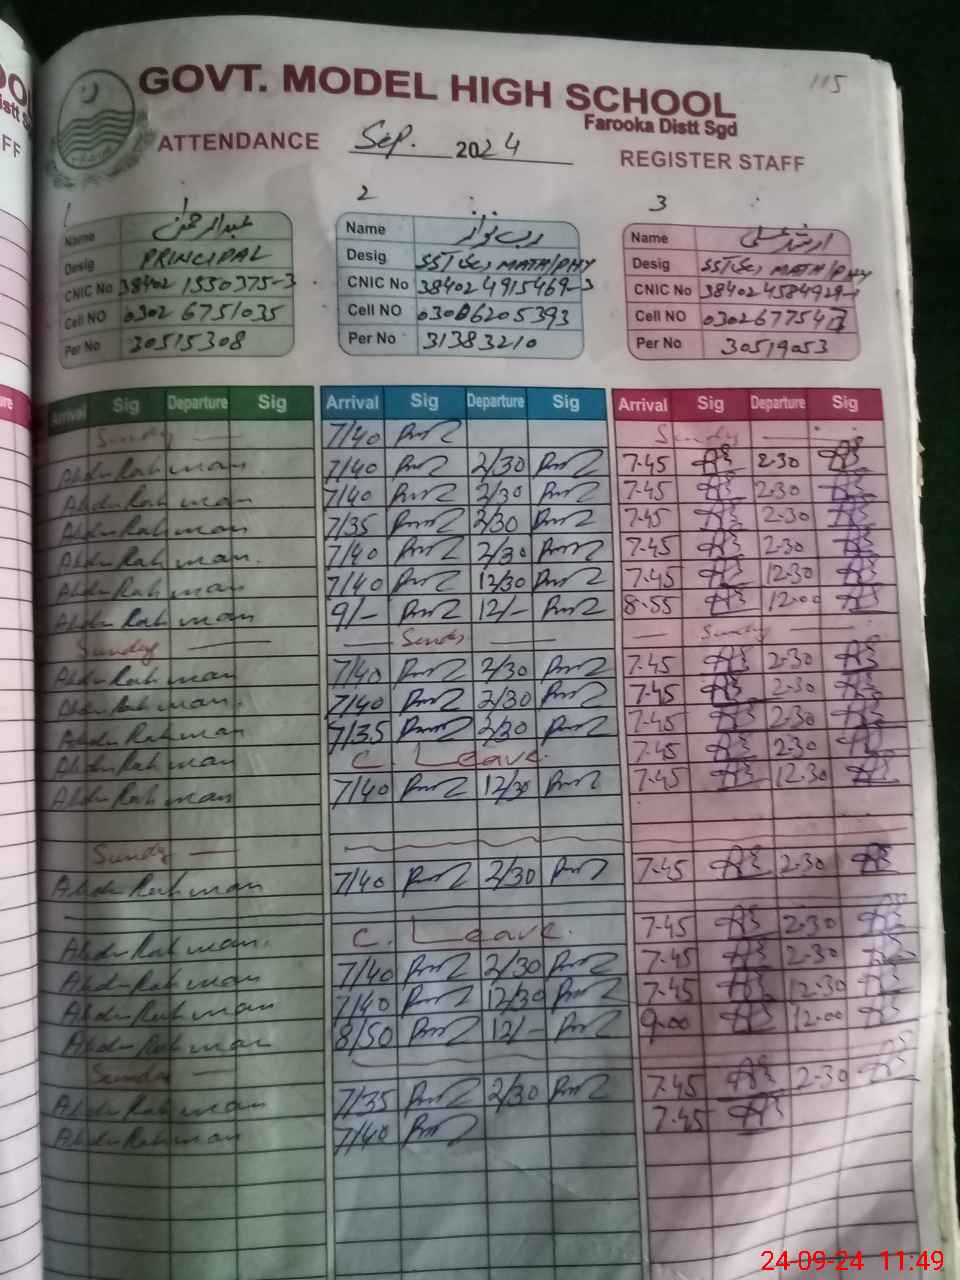 GOVT. MODEL HIGH SCHOOL
Farooka Distt Sgd
115
ATTENDANCE Sep. 2024 REGISTER STAFF
1 2 3
Name عبدالرحمن
Desig PRINCIPAL
CNIC No 38402 1550375-3
Cell NO 0302 6751035
Per No 30515308
Name رب نواز
Desig SST MATH/PHY
CNIC No 38402 4915469-3
Cell NO 03006205393
Per No 31383210
Name ارشد علی
Desig SST MATH/PHY
CNIC No 384024584929-1
Cell NO
Per No 30519053
Arrival Sig Departure Sig Arrival Sig Departure Sig Arrival Sig Departure Sig
Sunday 7/40 Sunday
Abdur Rahman 7/40 2/30 7-45 2-30
Abdur Rahman 7/40 2/30 7-45 2-30
Abdur Rahman 7/35 2/30 7-45 2-30
Abdur Rahman 7/40 2/30 7-45 2-30
Abdur Rahman 7/40 12/30 7-45 12-30
Abdur Rahman 9/- 12/- 8-55 12-00
Sunday Sunday Sunday
Abdur Rahman 7/40 2/30 7-45 2-30
Abdur Rahman 7/40 2/30 7-45 2-30
Abdur Rahman 7/35 2/30 7-45 2-30
Abdur Rahman C. Leave. 7-45 2-30
Abdur Rahman 7/40 12/30 7-45 12-30
Sunday
Abdur Rahman 7/40 2/30 7-45 2-30
Abdur Rahman C. Leave. 7-45 2-30
Abdur Rahman 7/40 2/30 7-45 2-30
Abdur Rahman 7/40 12/30 7-45 12-30
Abdur Rahman 8/50 12/- 9-00 12-00
Sunday
Abdur Rahman 7/35 2/30 7-45 2-30
Abdur Rahman 7/40 7-45
24-09-24 11:49